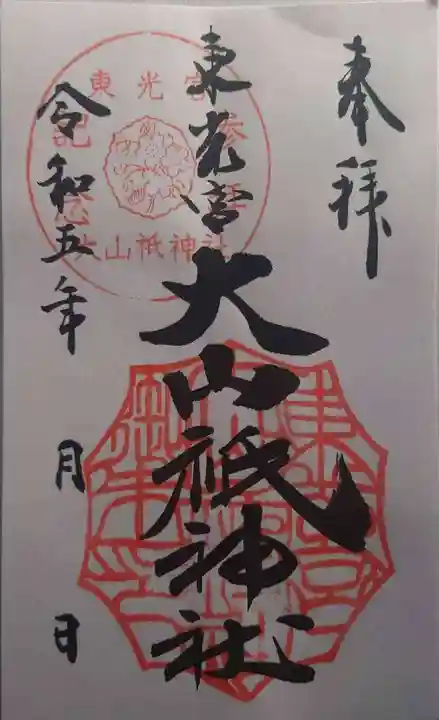 奉拝
東光宮
大山祇神社
令和五年 月 日
東光宮
参拝
記念
大山祇神社